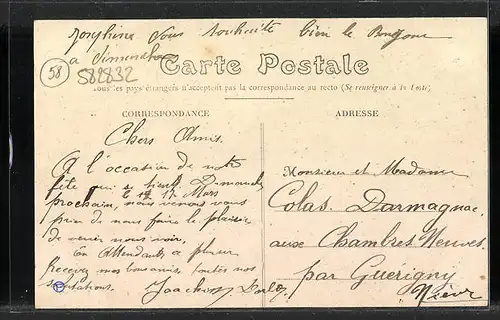 Josephine vous souhaite bien le Bonjour
a Dimanche
58
582832
Carte Postale
Tous les pays étrangers n'acceptent pas la correspondance au recto (Se renseigner à la Poste)
CORRESPONDANCE
ADRESSE
Chers Amis.
A l'occasion de notre
fête qui se tient Dimanche
le 17 Mars
prochain, nous venons vous
prier de nous faire le plaisir
de venir nous voir.
En Attendant ce plaisir
Recevez nos bonamis toutes nos
salutations.
Monsieur et Madame
Colas. Darmagnac
aux Chambres Neuves
par Guérigny
Nièvre